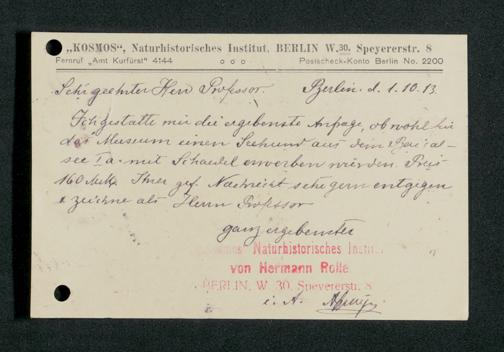 „KOSMOS“, Naturhistorisches Institut, BERLIN W. 30. Speyererstr. 8
Fernruf „Amt Kurfürst“ 4144 o o o Postscheck-Konto Berlin No. 2200
Sehr geehrter Herr Professor. Berlin. d. 1. 10. 13.
Ich gestatte mir die ergebenste Anfrage, ob wohl für
das Museum einen Seehund aus dem Baikal-
see Ia. mit Schaedel erwerben würden. Preis
160 Mk. Ihrer gef. Nachricht sehe gern entgegen
& zeichne als Herrn Professor
ganz ergebenster
Kosmos" Naturhistorisches Institut
von Hermann Rolle
BERLIN, W. 30, Speyererstr. 8
i. A.